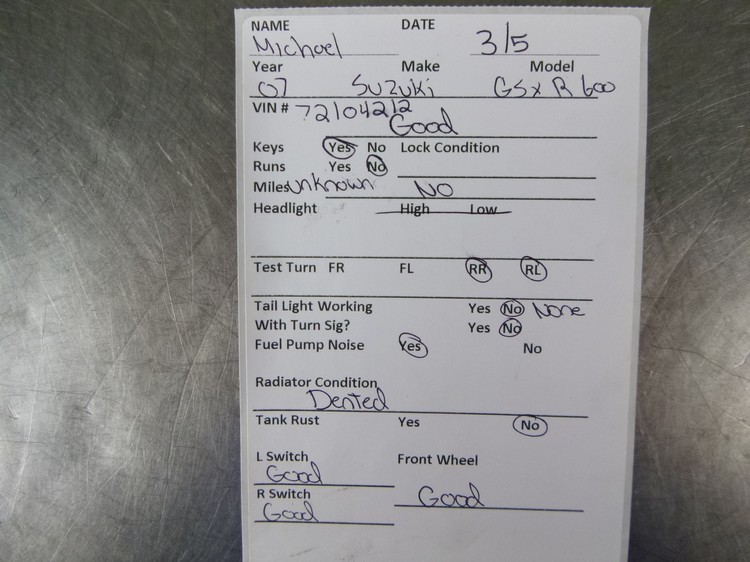 NAME DATE
Michael 3/5
Year Make Model
07 Suzuki GSX R 600
VIN # 72104212
Good
Keys Yes No Lock Condition
Runs Yes No
Miles Unknown NO
Headlight High Low
Test Turn FR FL RR RL
Tail Light Working Yes No None
With Turn Sig? Yes No
Fuel Pump Noise Yes No
Radiator Condition
Dented
Tank Rust Yes No
L Switch Front Wheel
Good
R Switch Good
Good